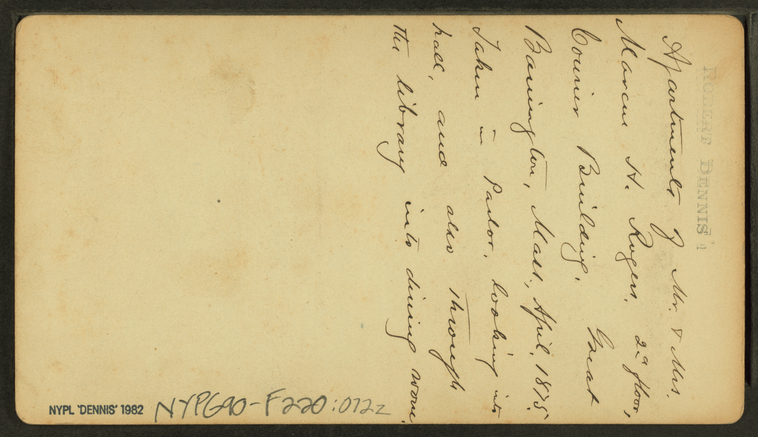 ROBERT DENNIS
Apartments of Mr. & Mrs.
Marcus H. Rogers, 2ᵈ floor,
Courier Building, Great
Barrington, Mass, April, 1875.
Taken in Parlor, looking into
hall, and also through
the library into dining room.
NYPL 'DENNIS' 1982
NYPG90-F220:072z